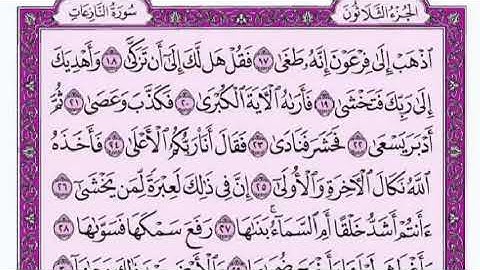 الجزء الثلاثون
سورة النازعات
ٱذْهَبْ إِلَىٰ فِرْعَوْنَ إِنَّهُۥ طَغَىٰ ١٧ فَقُلْ هَل لَّكَ إِلَىٰٓ أَن تَزَكَّىٰ ١٨ وَأَهْدِيَكَ
إِلَىٰ رَبِّكَ فَتَخْشَىٰ ١٩ فَأَرَىٰهُ ٱلْـَٔايَةَ ٱلْكُبْرَىٰ ٢٠ فَكَذَّبَ وَعَصَىٰ ٢١ ثُمَّ
أَدْبَرَ يَسْعَىٰ ٢٢ فَحَشَرَ فَنَادَىٰ ٢٣ فَقَالَ أَنَا۠ رَبُّكُمُ ٱلْأَعْلَىٰ ٢٤ فَأَخَذَهُ
ٱللَّهُ نَكَالَ ٱلْـَٔاخِرَةِ وَٱلْأُولَىٰٓ ٢٥ إِنَّ فِى ذَٰلِكَ لَعِبْرَةً لِّمَن يَخْشَىٰٓ ٢٦
ءَأَنتُمْ أَشَدُّ خَلْقًا أَمِ ٱلسَّمَآءُ ۚ بَنَىٰهَا ٢٧ رَفَعَ سَمْكَهَا فَسَوَّىٰهَا ٢٨